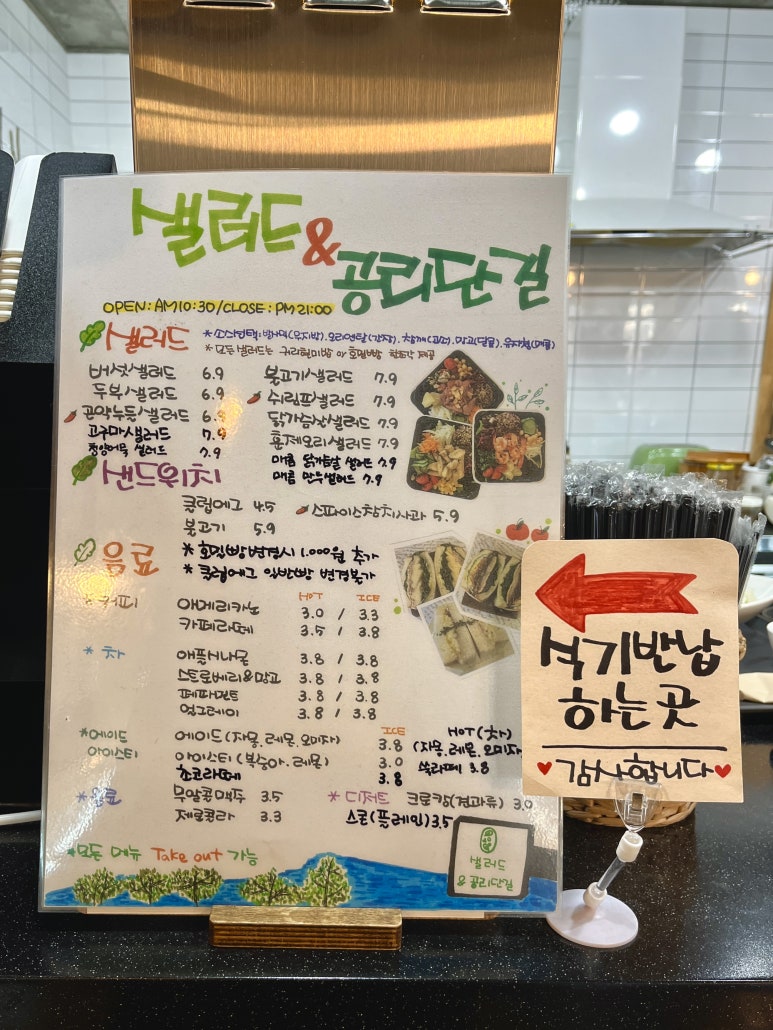 샐러드
&
공리단길
OPEN:AM10:30/CLOSE:PM21:00
샐러드
*소스선택: 발사믹(무지방). 오리엔탈(간장). 참깨(고소). 망고(달콤). 유자칠(매콤)
*모든 샐러드는 귀리현미밥 or 호밀빵 한조각 제공
버섯샐러드 6.9
두부샐러드 6.9
곤약누들샐러드 6.9
고구마샐러드 7.9
청양어묵 샐러드 7.9
불고기샐러드 7.9
쉬림프샐러드 7.9
닭가슴살샐러드 7.9
훈제오리샐러드 7.9
매콤 닭가슴살 샐러드 7.9
매콤 만두샐러드 7.9
샌드위치
클럽에그 4.5
불고기 5.9
스파이스참치사과 5.9
*호밀빵변경시 1.000원 추가
*클럽에그 일반빵 변경불가
음료
HOT ICE
*커피 아메리카노 3.0 / 3.3
카페라떼 3.5 / 3.8
*차 애플시나몬 3.8 / 3.8
스트로베리&망고 3.8 / 3.8
페파민트 3.8 / 3.8
얼그레이 3.8 / 3.8
ICE HOT(차)
*에이드 에이드(자몽.레몬.오미자) 3.8 (자몽.레몬.오미자
아이스티 아이스티(복숭아.레몬) 3.0 쑥라떼 3.8
쵸코라떼 3.8
*음료 무알콜맥주 3.5
제로콜라 3.3
*디저트 크로캉(견과류) 3.0
스콘(플레인)3.5
*모든 메뉴 Take out 가능
샐러드
&공리단길
식기반납
하는곳
감사합니다